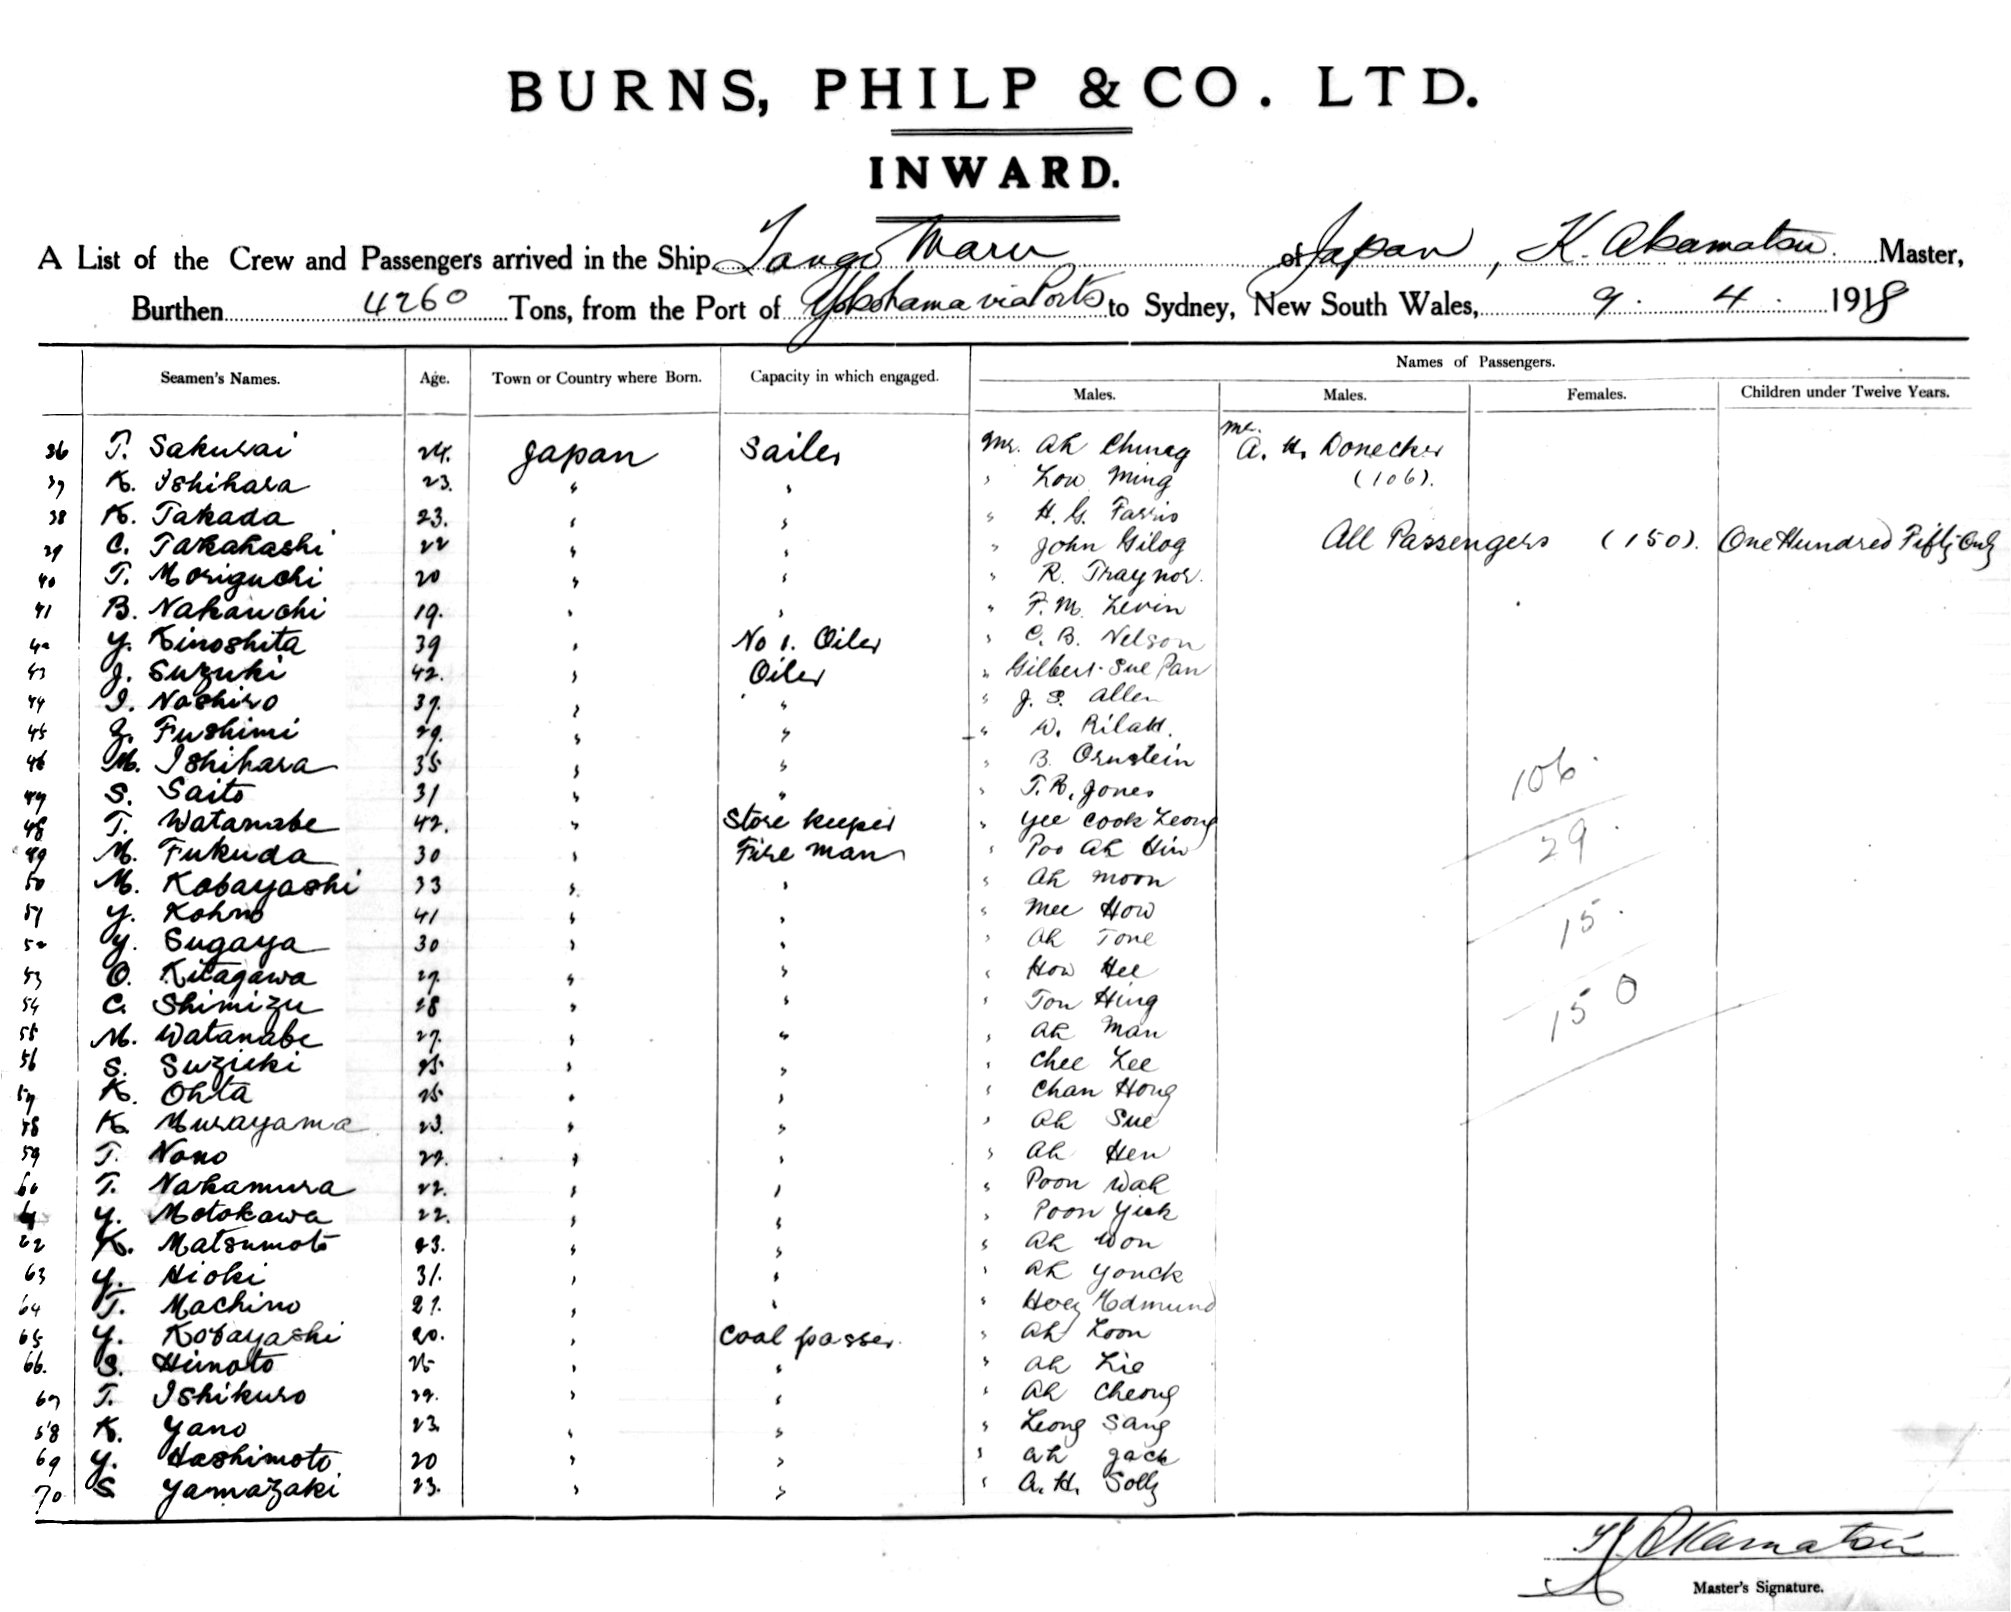 BURNS, PHILP & CO. LTD.
INWARD.
A List of the Crew and Passengers arrived in the Ship Tango Maru of Japan, K. Akamatsu. Master,
Burthen 4260 Tons, from the Port of Yokohama via Ports to Sydney, New South Wales, 9. 4. 1918
Names of Passengers.
Seamen's Names. Age. Town or Country where Born. Capacity in which engaged. Males. Males. Females. Children under Twelve Years.
36 T. Sakurai 24. Japan Sailer Mr. Ah Chung Mr. A. H. Donecker
37 K. Ishihara 23. " " " Low Ming (106).
38 K. Takada 23. " " " H. G. Farris
39 C. Takahashi 22 " " " John Gilog All Passengers (150). One Hundred Fifty Only
40 T. Moriguchi 20 " " " R. Traynor.
41 B. Nakauchi 19. " " " F. M. Levin
42 Y. Kinoshita 39 " No 1. Oiler " C. B. Nelson
43 J. Suzuki 42. " Oiler " Gilbert Sue Pan
44 I. Noshiro 37. " " " J. S. Allen
45 Z. Fushimi 29. " " " W. Rilatt.
46 M. Ishihara 35 " " " B. Ornstein
47 S. Saito 31 " " " T. R. Jones
48 T. Watanabe 42. " Store keeper " Yee Cook Leong
49 M. Fukuda 30 " Fire man " Poo Ah Hin
50 M. Kobayashi 33 " " " Ah Moon
51 Y. Kohno 41 " " " Mee How
52 Y. Sugaya 30 " " " Ah Tone
53 O. Kitagawa 27. " " " How Hee
54 C. Shimizu 28 " " " Ton Hing
55 M. Watanabe 27. " " " Ah Man
56 S. Suzuki 25. " " " Chee Lee
57 K. Ohta 25. " " " Chan Hong
58 K. Murayama 23. " " " Ah Sue
59 T. Nono 22. " " " Ah Hen
60 T. Nakamura 22. " " " Poon Wah
61 Y. Motokawa 22. " " " Poon Yick
62 K. Matsumoto 23. " " " Ah Won
63 Y. Hioki 31. " " " Ah Yonck
64 T. Machino 21. " " " Hoey Edmund
65 Y. Kobayashi 20. " Coal passer. " Ah Loon
66. S. Himoto 25 " " " Ah Lie
67 T. Ishikuro 22. " " " Ah Cheong
68 K. Yano 23. " " " Leong Sang
69 Y. Hashimoto 20 " " " Ah Jack
70 S. Yamazaki 23. " " " A. H. Solly
106.
29.
15.
150
K. Akamatsu
Master's Signature.